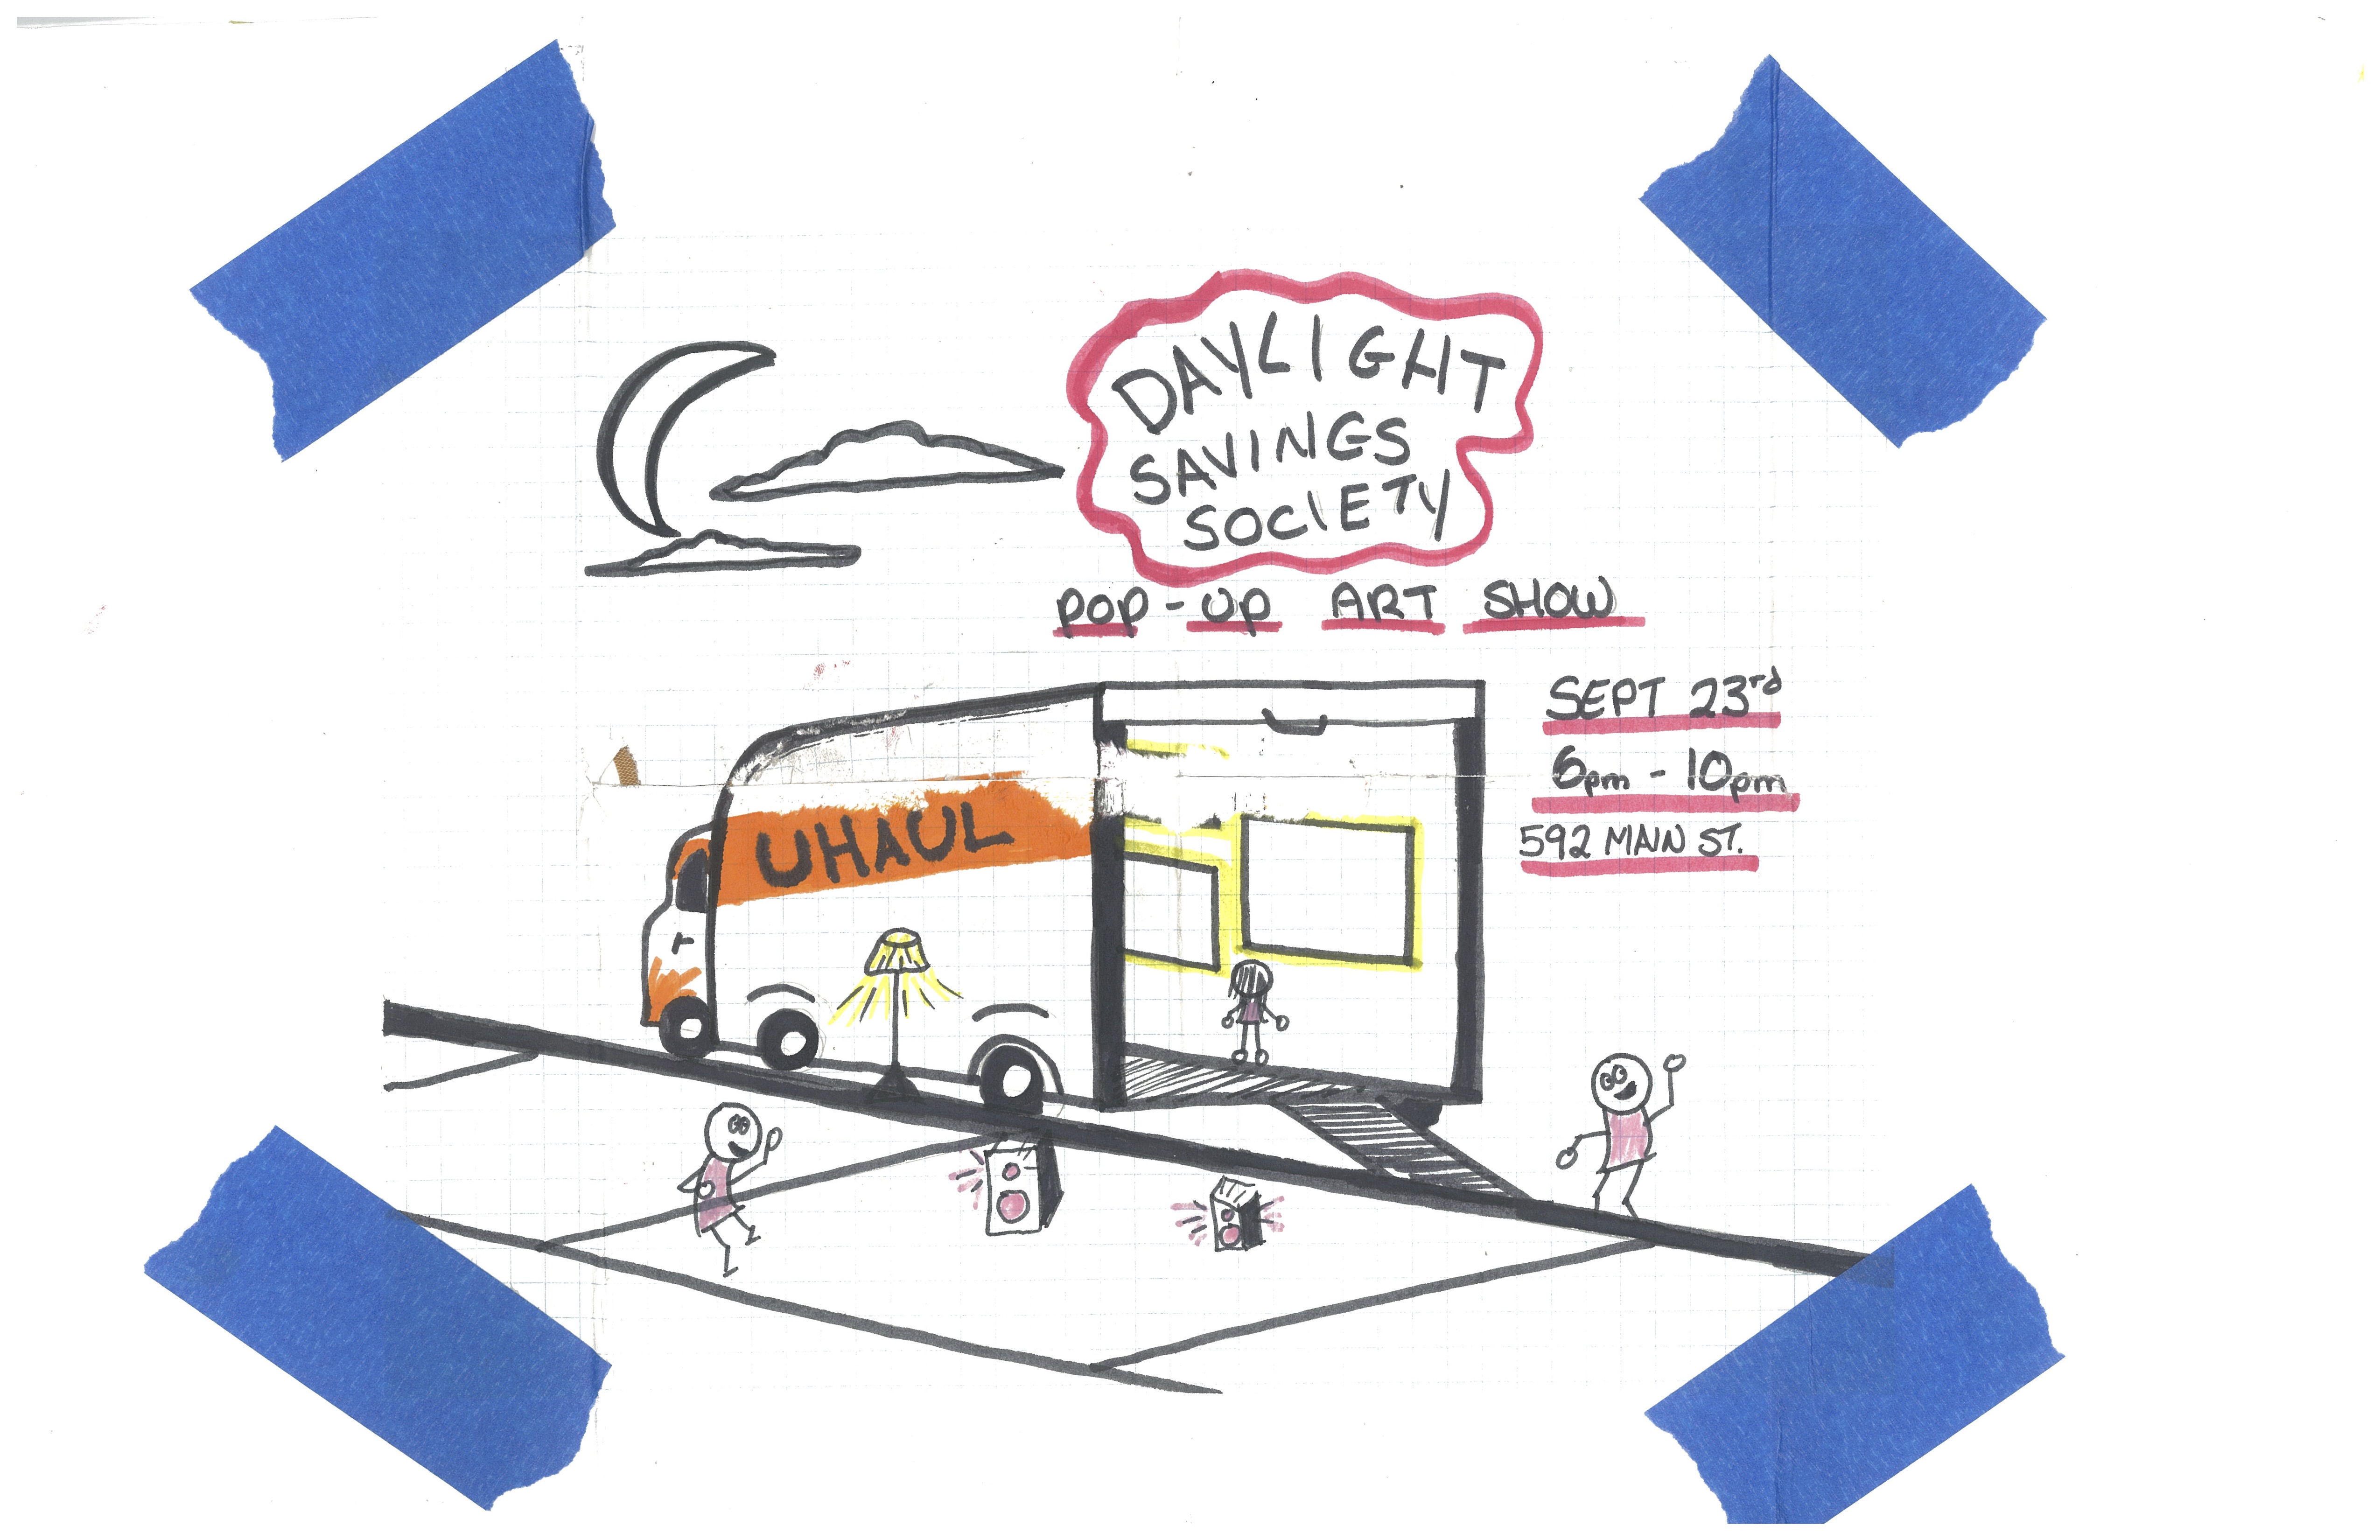 DAYLIGHT
SAVINGS
SOCIETY
POP-UP ART SHOW
SEPT 23rd
6pm - 10pm
592 MAIN ST.
UHAUL